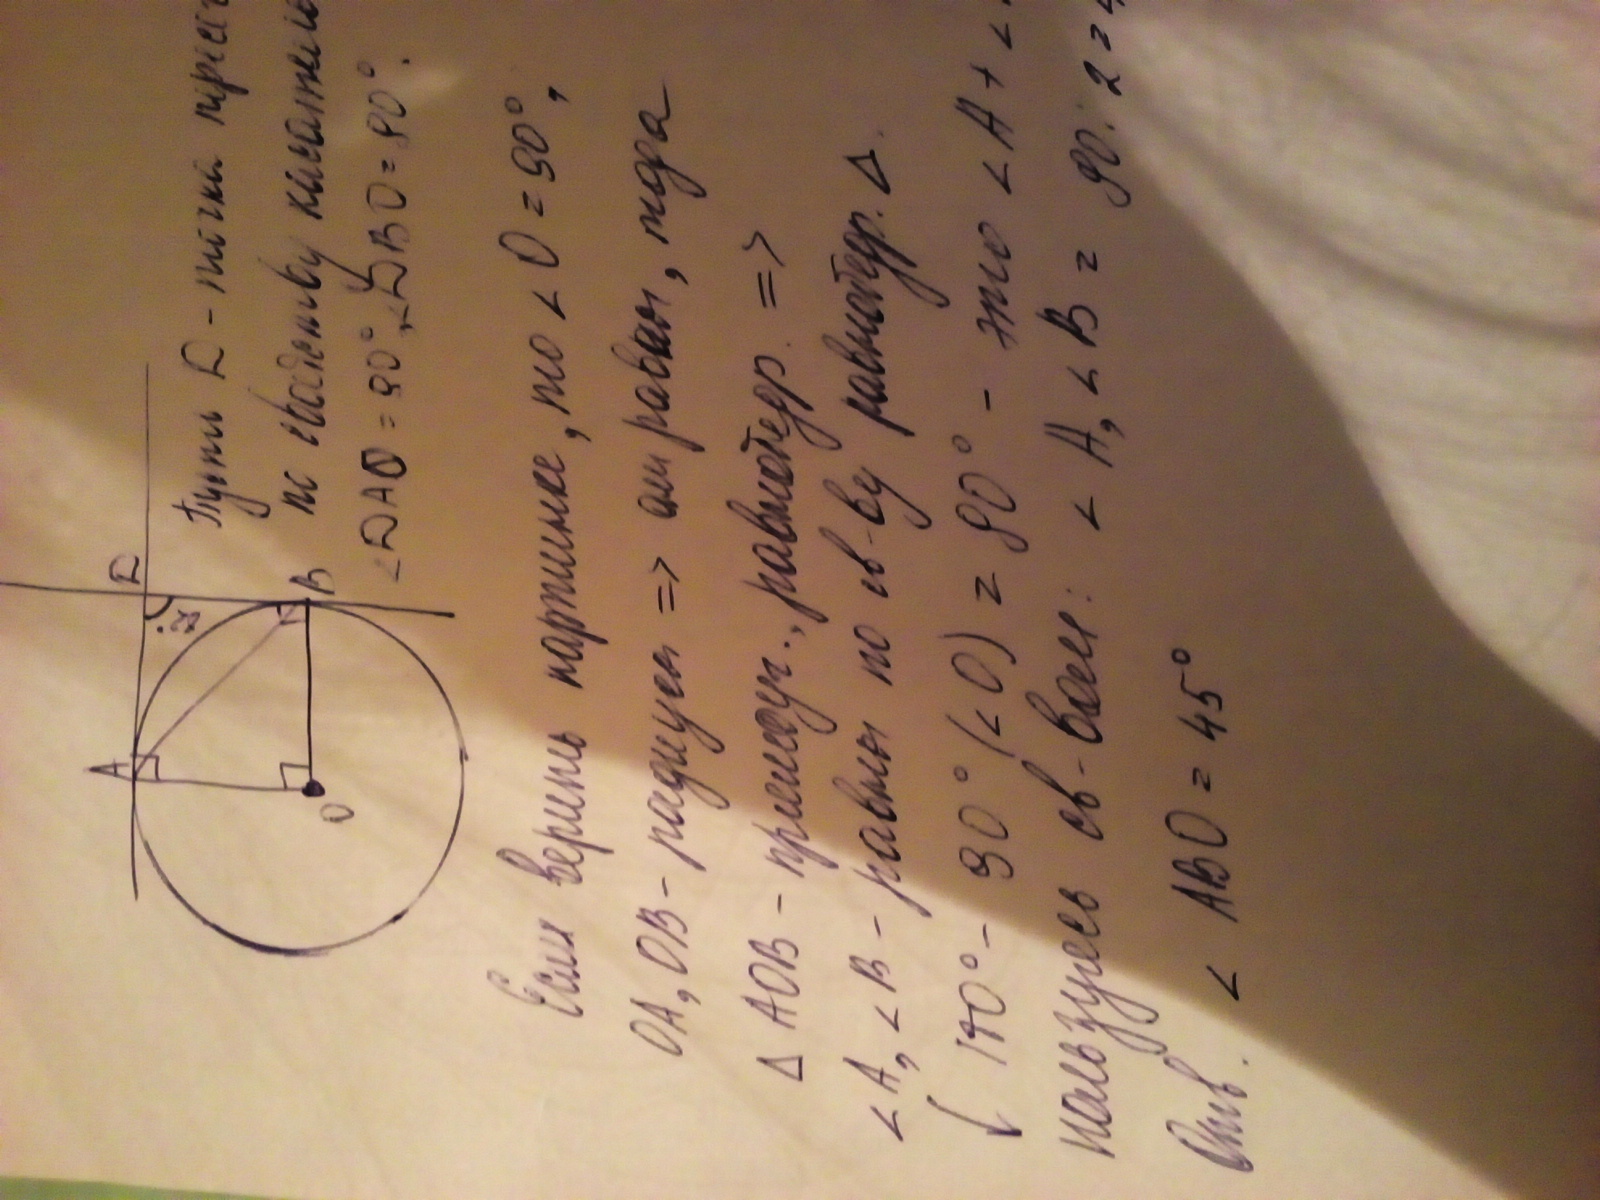 A
D
B
O
Пусть D - точка перес
по свойству касатель
∠DAO = 90°, ∠DBO = 90°.
Если верить картинке, то ∠O = 90°,
OA, OB - радиусы => они равны, тогда
Δ AOB - прямоуг., равнобедр. =>
∠A, ∠B - равны по св-ву равнобедр. Δ.
180° - 90° (∠O) = 90° - это ∠A + ∠
пользуясь св-вом: ∠A, ∠B = 90 : 2 = 4
Отв. ∠ABO = 45°